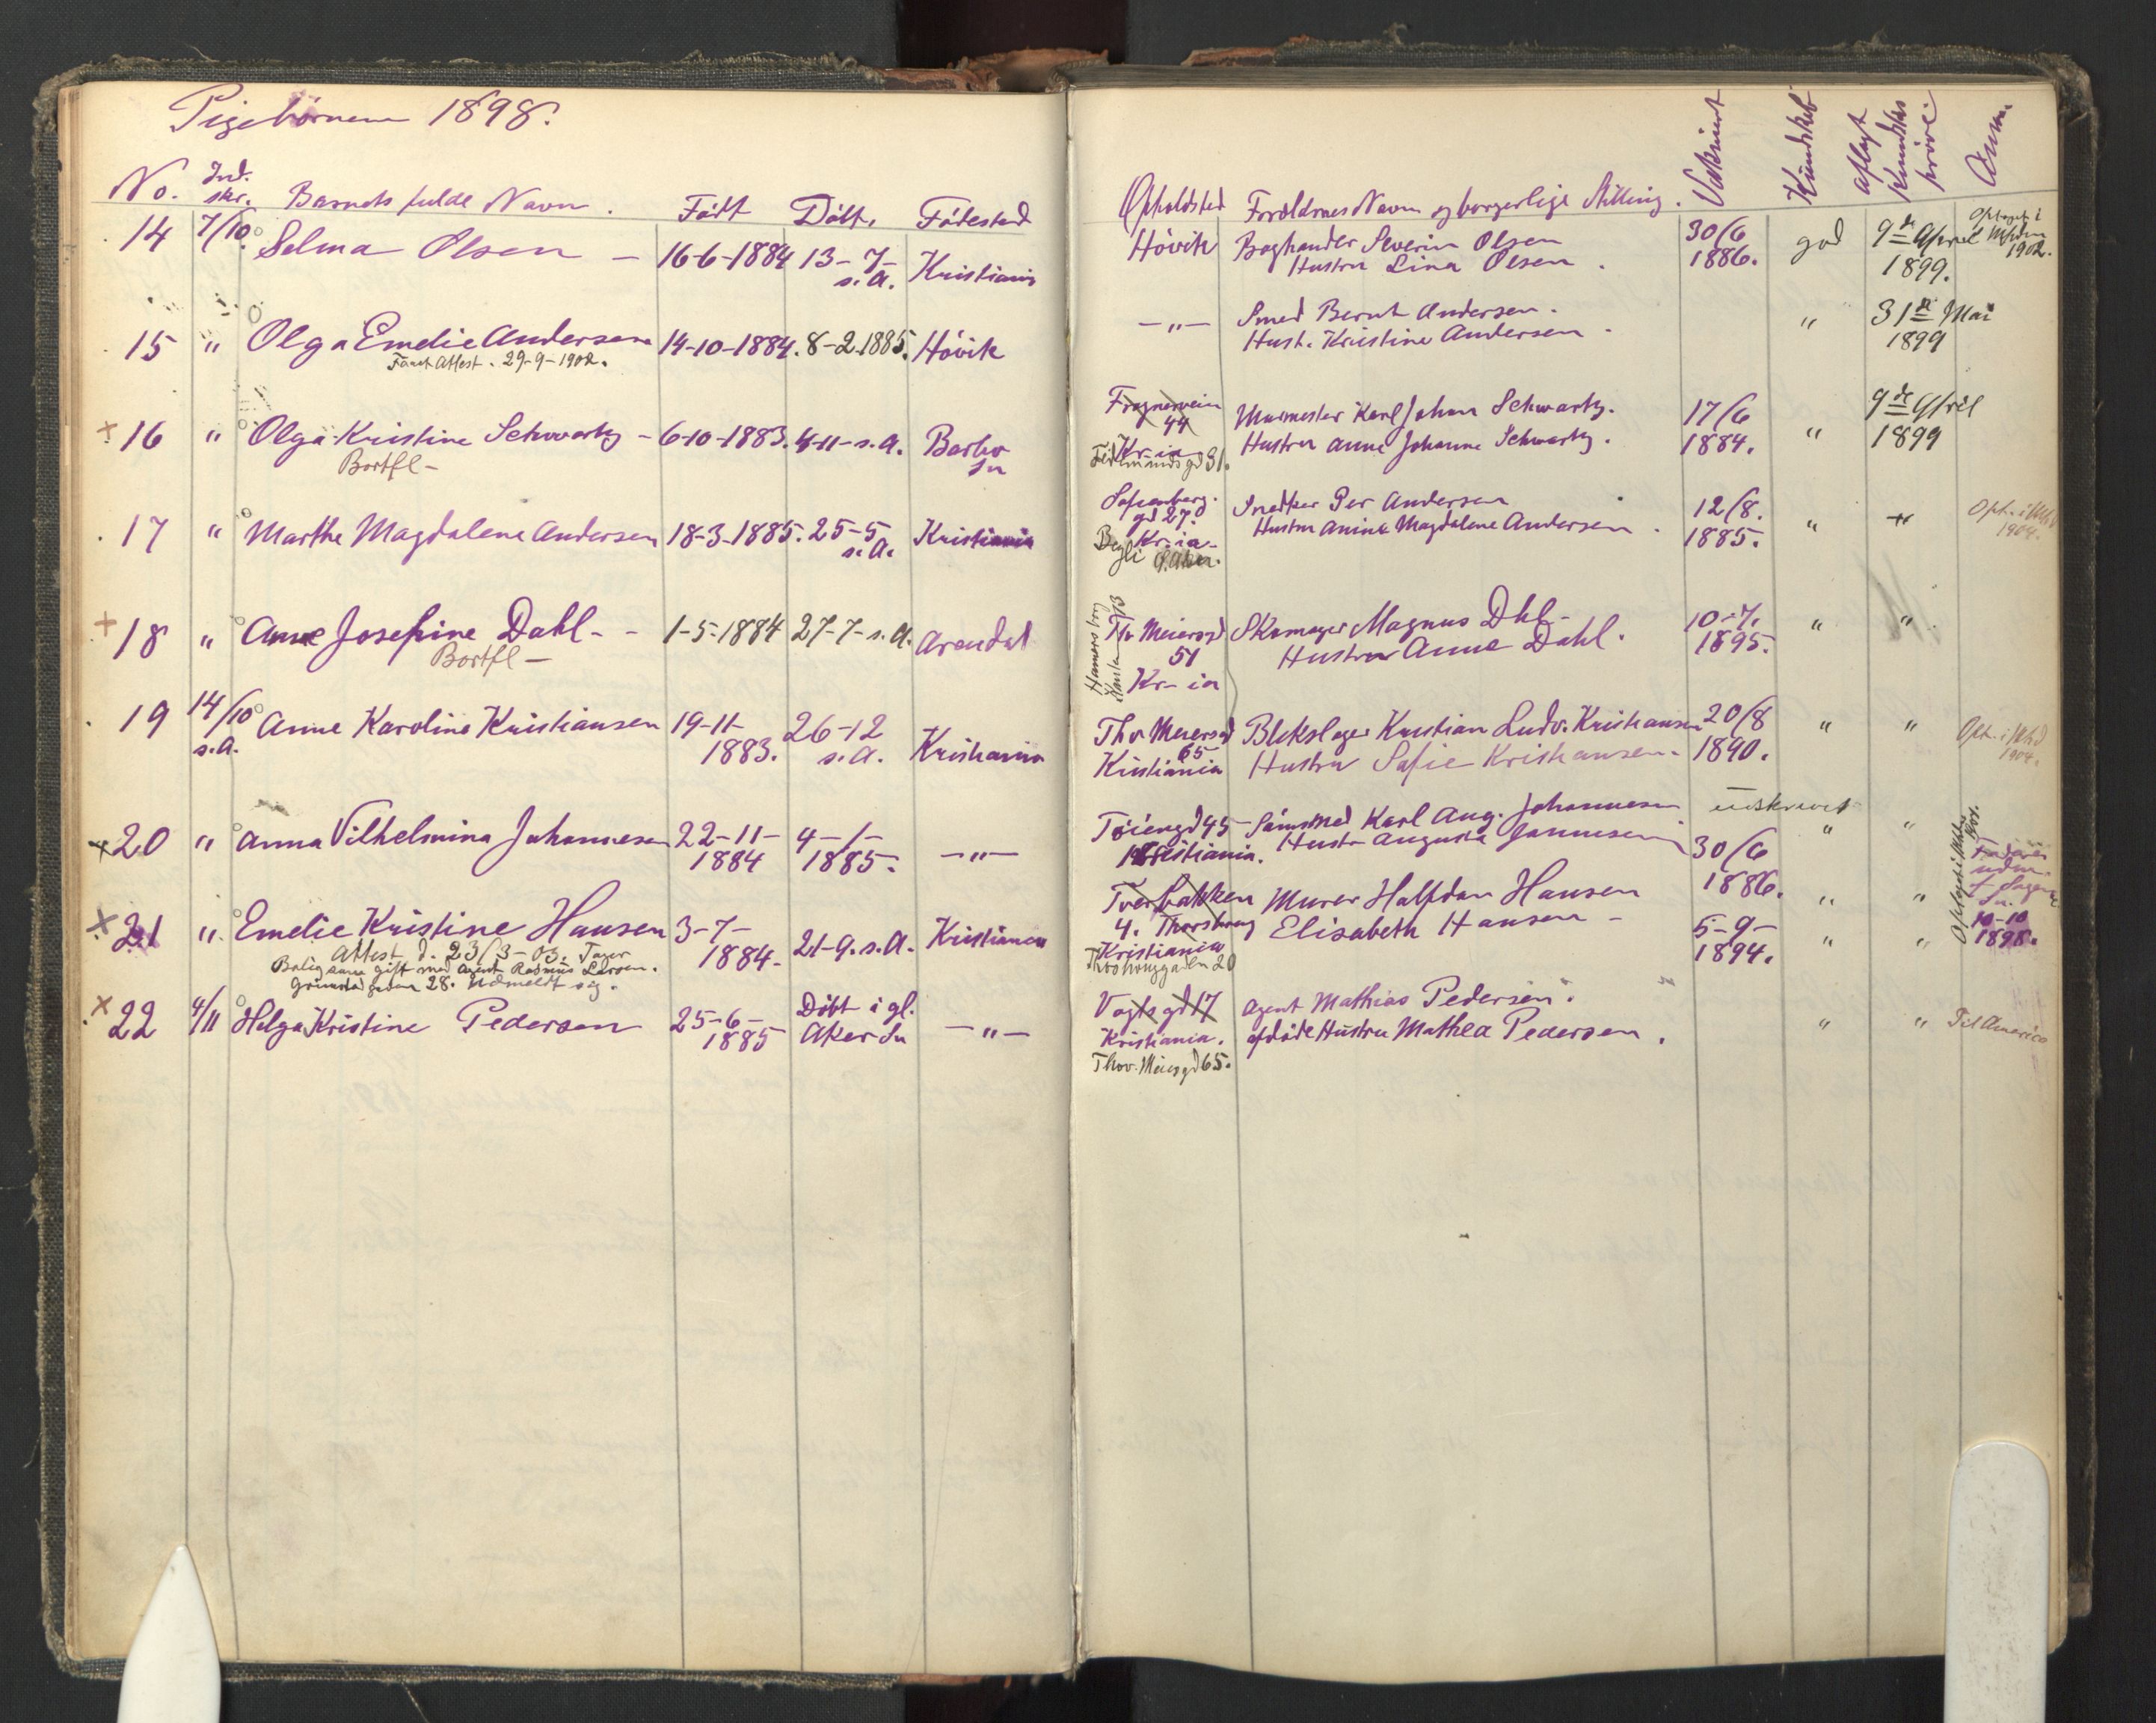 Pigebørnene 1898.
No. Ind. skr. Barnets fulde Navn. Født Døbt. Fødested
14 7/10 Selma Olsen – 16-6-1884 13-7- s.A. Kristiania
15 " Olga Emelie Andersen 14-10-1884. 8-2-1885. Høvik
Faaet Attest. 29-9-1902.
× 16 " Olga Kristine Schwartz – 6-10-1883. 4-11-s.A. Barbo Sn
Bortfl –
17 " Marthe Magdalene Andersen 18-3-1885. 25-5 s.A. Kristiania
+ 18 " Anne Josefine Dahl - - 1-5-1884 27-7-s.A. Arendal
Bortfl –
19 14/10 s.A. Anne Karoline Kristiansen 19-11- 1883. 26-12 s.A. Kristiania
× 20 " Anna Vilhelmina Johannesen 22-11- 1884 4-1- 1885. –"–
× 21 " Emelie Kristine Hansen 3-7- 1884- 21-9.s.A. Kristiania
Attest d. 23/3-03. Tager
Bolig gift med Agent Rasmus Larsen.
Grimstadgaden 28. Udmeldt sig.
× 22 4/11 Helga Kristine Pedersen 25-6- 1885 Døbt i gl. Aker Sn –"–
Opholdsted Forældrenes Navn og borgerlige Stilling. Vaksinert Kundskab aflagt Kundskabs prøve: Anm.
Høvik Boghander Severin Olsen
Hustru Lina Olsen. 30/6 1886. god 9de April 1899. Optaget i Mhden 1902.
–"– Smed Bernt Andersen.
Hust. Kristine Andersen. " 31te Mai 1899
Frognervein 44 Kr-ia
gd 31. Murmester Karl Johan Schwartz.
Hustru Anne Johanne Schwartz. 17/6 1884. " 9de April 1899
Sofienberg. gd 27. Kr-ia-
Ø. Aker. Snedker Per Andersen
Hustru Anina Magdalene Andersen. 12/8. 1885. " " Opt. i Mhd 1904.
Th. Meiersgd 51 Kr-ia Skomager Magnus Dhl-
Hustru Anne Dahl. 10-7. 1895. " "
Thv Meiersgd 65 Kristiania Blikslager Kristian Ludv. Kristiansen
Hustru Sofie Kristiansen. 20/8 1890. " " Opt. i Mhd 1904.
Tøiengd 45 Kristiania. Sømsmed Karl Aug. Johannesen
Hustr Augusta Johannesen 30/6 1886. " "
Tverbakken 4. Thorshaug Kristiania
Thorshauggaden 20 Murer Halfdan Hansen
Elisabeth Hansen – 5-9- 1894. " " 10-10 1898.
Vogtsgd 17 Kristiania.
Thov. Meiersgd 65. Agent Mathias Pedersen.
afdøde Hustru Mathea Pedersen. " " Til America